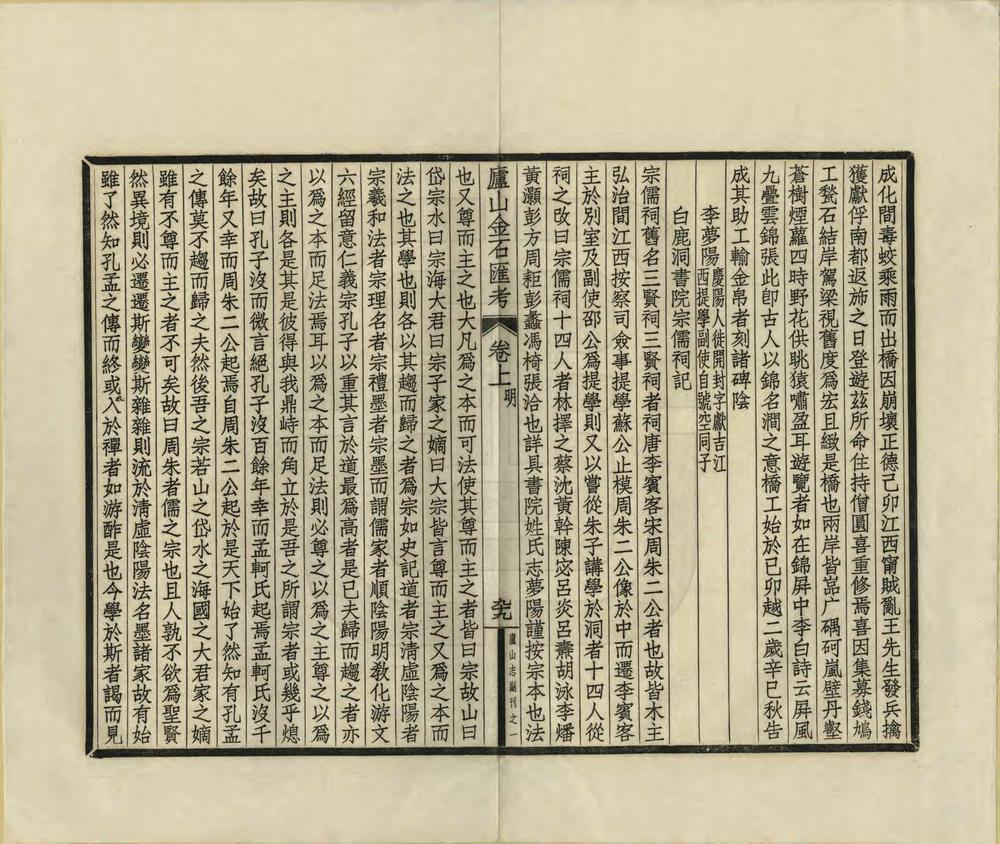 成化間毒蛟乘雨而出橋因崩壞正德己卯江西甯賊亂王先生發兵擒
獲獻俘南都返斾之日登遊茲所命住持僧圓喜重修焉喜因集募錢鳩
工甃石結岸駕梁視舊度爲宏且緻是橋也兩岸皆嵓广碢砢嵐壁丹壑
蒼樹煙蘿四時野花供眺猿嘯盈耳遊覽者如在錦屏中李白詩云屏風
九疊雲錦張此卽古人以錦名澗之意橋工始於己卯越二歲辛巳秋告
成其助工輸金帛者刻諸碑陰
李夢陽慶陽人徙開封字獻吉江
西提學副使自號空同子
白鹿洞書院宗儒祠記
宗儒祠舊名三賢祠三賢祠者祠唐李賓客宋周朱二公者也故皆木主
弘治間江西按察司僉事提學蘇公止模周朱二公像於中而遷李賓客
主於別室及副使邵公爲提學則又以嘗從朱子講學於洞者十四人從
祠之改曰宗儒祠十四人者林擇之蔡沈黃幹陳宓呂炎呂燾胡泳李燔
黃灝彭方周耟彭蠡馮椅張洽也詳具書院姓氏志夢陽謹按宗本也法
廬山金石匯考
卷上
明
廬山志副刊之一
也又尊而主之也大凡爲之本而可法使其尊而主之者皆曰宗故山曰
岱宗水曰宗海大君曰宗子家之嫡曰大宗皆言尊而主之又爲之本而
法之也其學也則各以其趨而歸之者爲宗如史記道者宗清虛陰陽者
宗羲和法者宗理名者宗禮墨者宗墨而謂儒家者順陰陽明教化游文
六經留意仁義宗孔子以重其言於道最爲高者是已夫歸而趨之者亦
以爲之本而足法焉耳以爲之本而足法則必尊之以爲之主尊之以爲
之主則各是其是彼得與我鼎峙而角立於是吾之所謂宗者或幾乎熄
矣故曰孔子沒而微言絕孔子沒百餘年幸而孟軻氏起焉孟軻氏沒千
餘年又幸而周朱二公起焉自周朱二公起於是天下始了然知有孔孟
之傳莫不趨而歸之夫然後吾之宗若山之岱水之海國之大君家之嫡
雖有不尊而主之者不可矣故曰周朱者儒之宗也且人孰不欲爲聖賢
然異境則必遷遷斯變變斯雜雜則流於清虛陰陽法名墨諸家故有始
雖了然知孔孟之傳而終或入於禪者如游酢是也今學於斯者謁而見